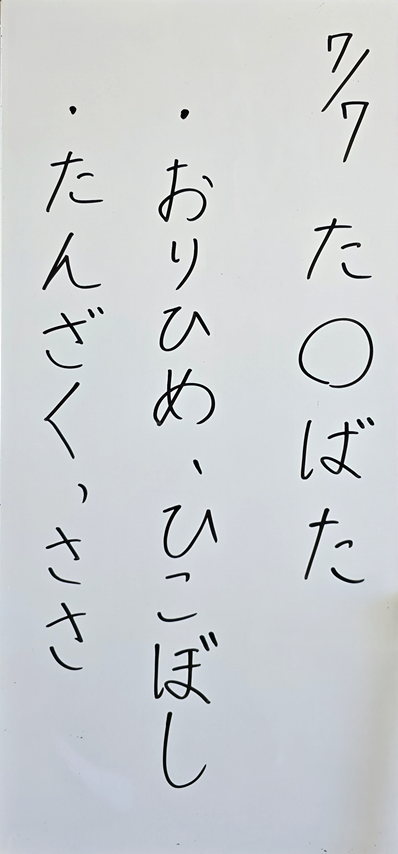 7/7 た○ばた
・おりひめ、ひこぼし
・たんざく,ささ